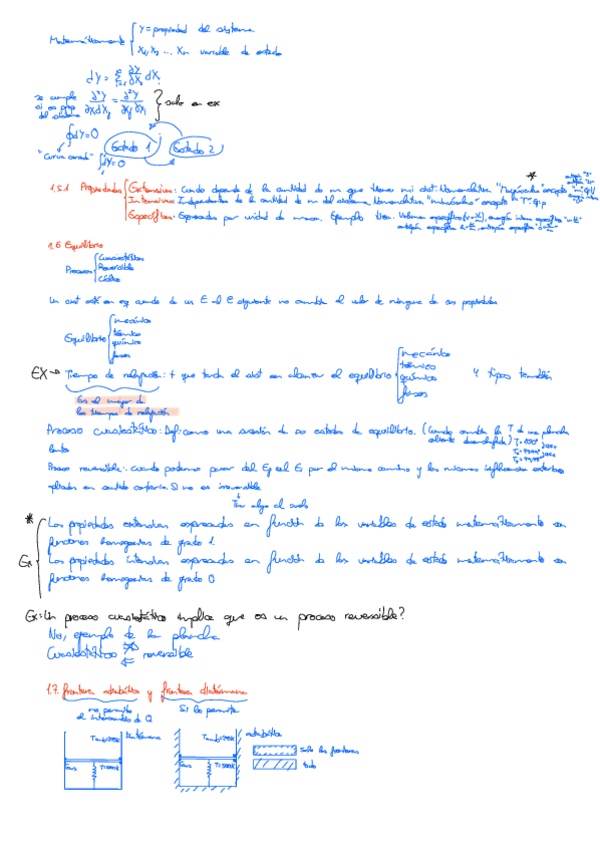 Matemáticamente { Y = propiedad del sistema
X1, X2 ... Xn variable de estado
dY = Σ ∂Y/∂Xi dXi
se cumple si es prop del sistema ∂²Y/∂Xi∂Xj = ∂²Y/∂Xj∂Xi } solo en ex
∮dY=0 Estado 1 Estado 2
"Curva cerrada" ∮dY=0
1.5.1 Propiedades { Extensivas: Cuando depende de la cantidad de m que tienes
Intensivas: Independientes de la cantidad de m del sistema, Nomenclatura "minúsculas" excepto "T"
Específicas: Expresadas por unidad de masa. Ejemplo
1.6 Equilibrio
Procesos { Cuasiestático
Reversible
Cíclico
Un sist está en eq cuando de un E al E siguiente no cambia el valor de ninguna de sus propiedades
Equilibrio { mecánico
térmico
químico
fases
EX → Tiempo de relajación: t que tarda el sist en alcanzar el equilibrio { mecánico
térmico
químico
fases
4 tipos también
Es el mayor de
los tiempos de relajación
Proceso cuasiestático: Def: como una sucesión de estados de equilibrio. (Cuando cambia la T de una plancha
lenta
Proceso reversible: cuando podemos pasar del E2 al E1 por el mismo camino y las mismas influencias externas
aplicadas en sentido contrario. Si no es irreversible
Tirar algo al suelo
* Las propiedades extensivas expresadas en función de las variables de estado matemáticamente son
funciones homogéneas de grado 1
Ex Las propiedades intensivas expresadas en función de las variables de estado matemáticamente son
funciones homogéneas de grado 0
Ex: Un proceso cuasiestático implica que es un proceso reversible?
No, ejemplo de la plancha
Cuasiestático ⇏ reversible
⇐
1.7. frontera adiabática y frontera diatérmana
no permite Si lo permite
el intercambio de Q
diatérmana adiabática
Gas Gas
solo las fronteras
todo